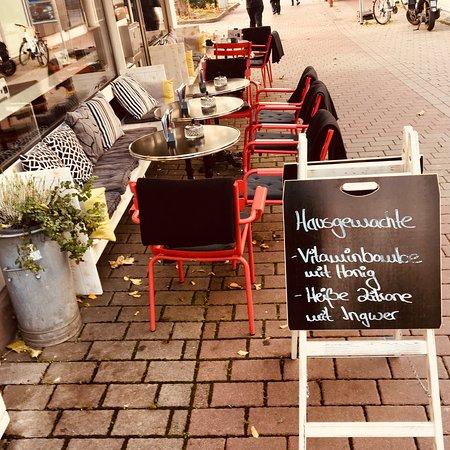 Hausgewachte
- Vitaminbombe
mit Honig
- Heiße Zitrone
mit Ingwer